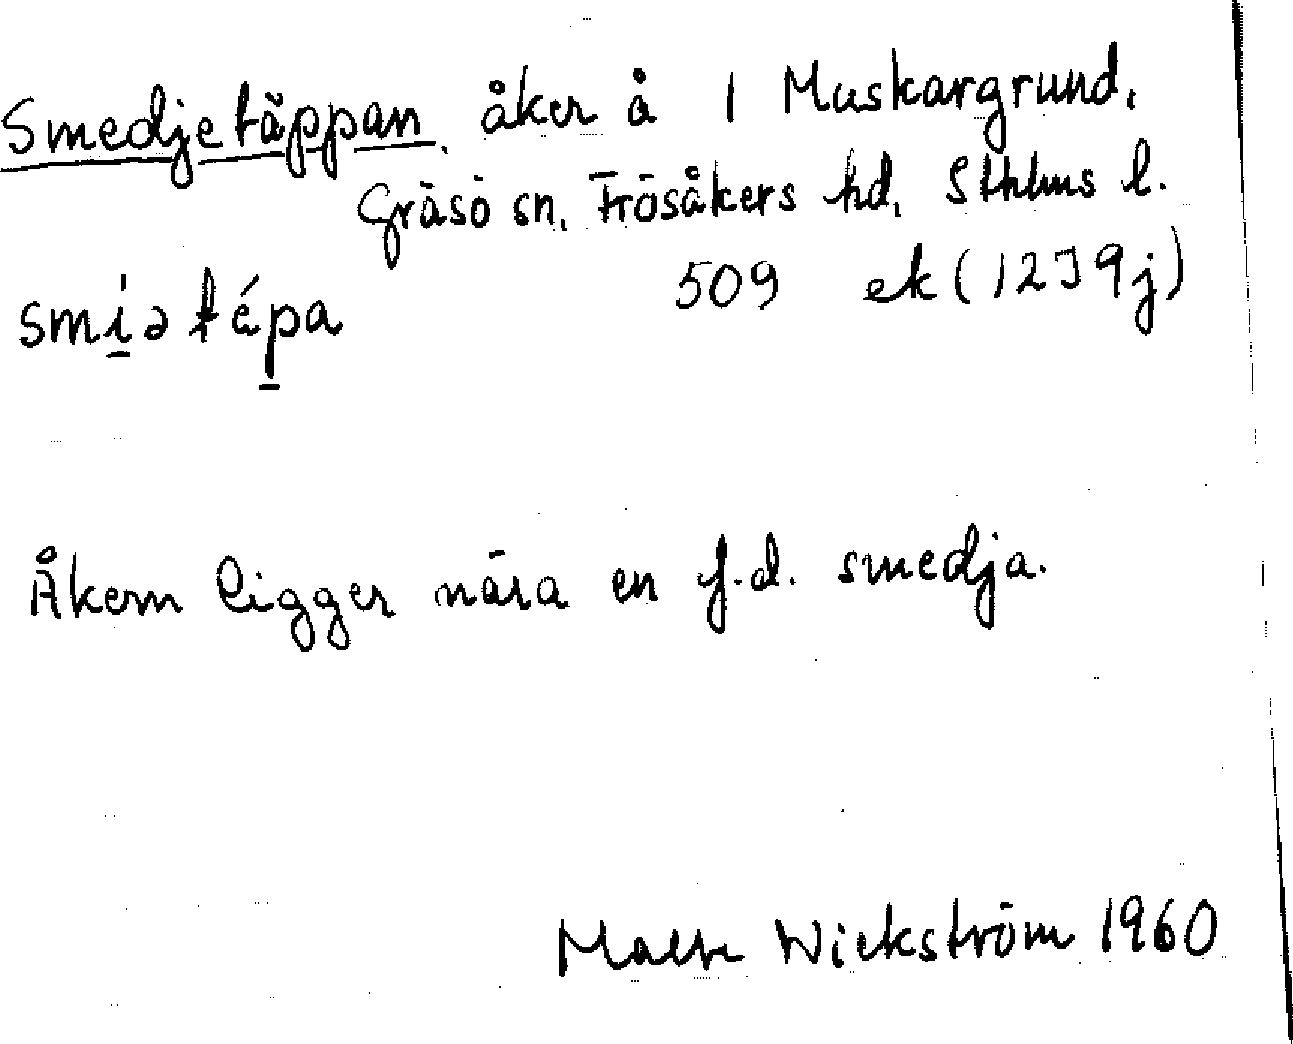 Smedjetäppan, åker å 1 Muskargrund,
Gräsö sn, Frösåkers hd, Sthlms l.
smíə tépa 509 ek (12J9j)
Åkern ligger nära en f.d. smedja.
Wickström 1960